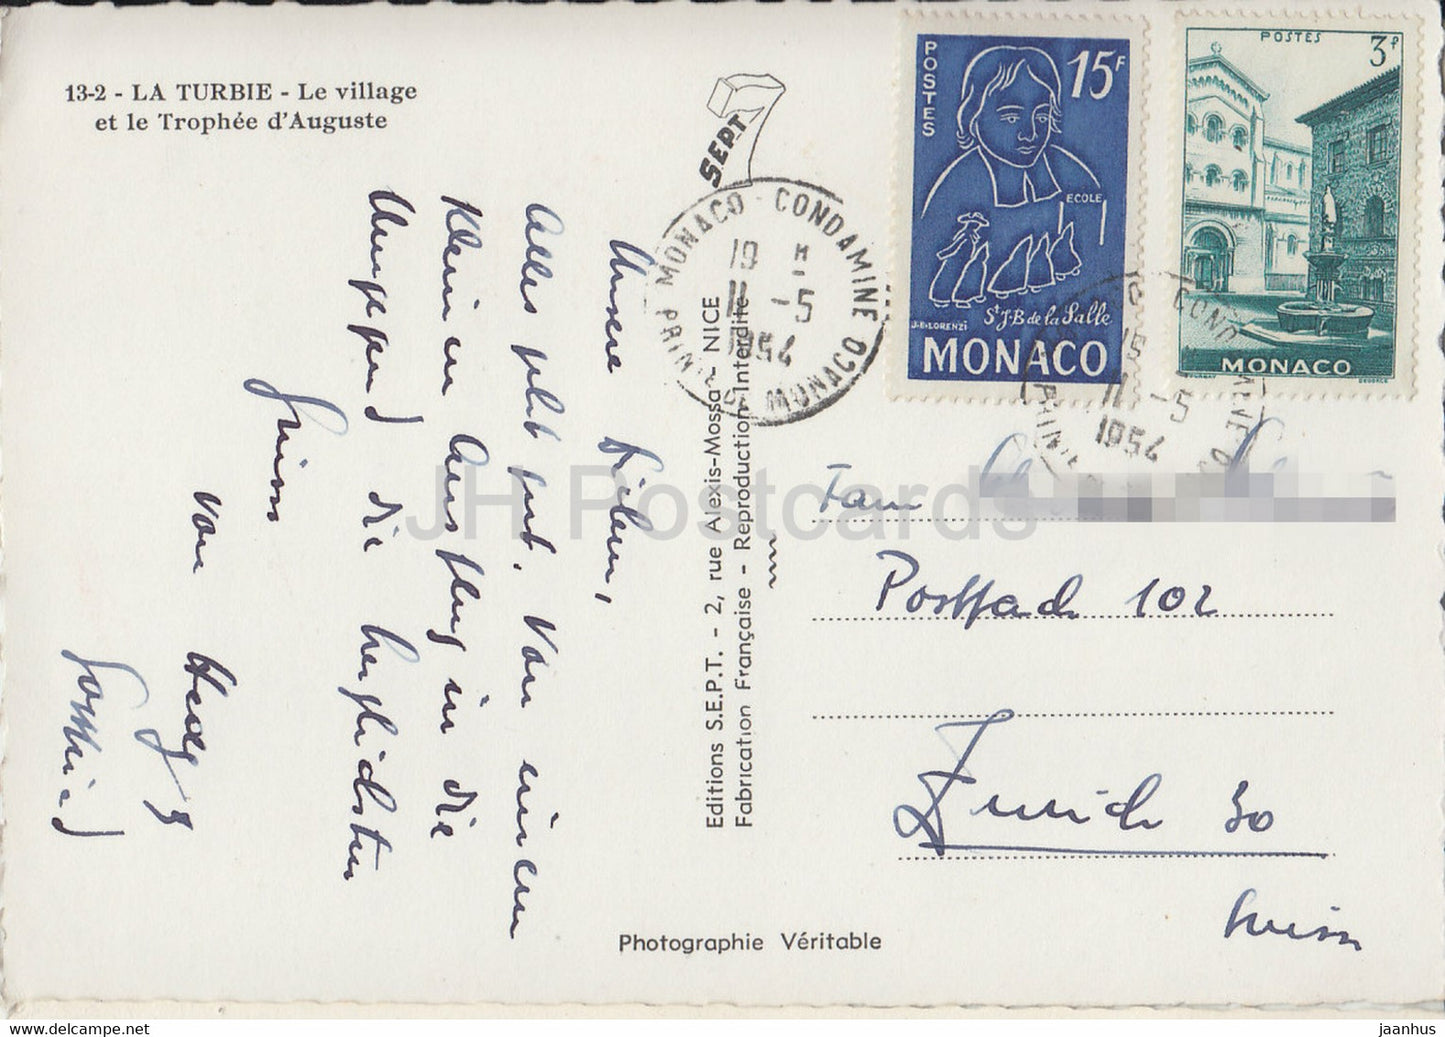 13-2 - LA TURBIE - Le village
et le Trophée d'Auguste
SEPT
Unsere Lieben,
Alles geht gut. Von einem
kleinen Ausflug in die
Umgegend die herzlichsten
Grüsse
von
Editions S.E.P.T. - 2, rue Alexis-Mossa - NICE
Fabrication Française - Reproduction Interdite
Photographie Véritable
MONACO - CONDAMINE
PRINCIPTÉ DE MONACO
19 H
11 -5
1954
POSTES
15F
ECOLE
St J-B de la Salle
J.E.LORENZI
MONACO
POSTES
3F
MONACO
COND
19
11 -5
1954
Postfach 102
Zürich 30
JH Postcards
www.delcampe.net
jaanhus